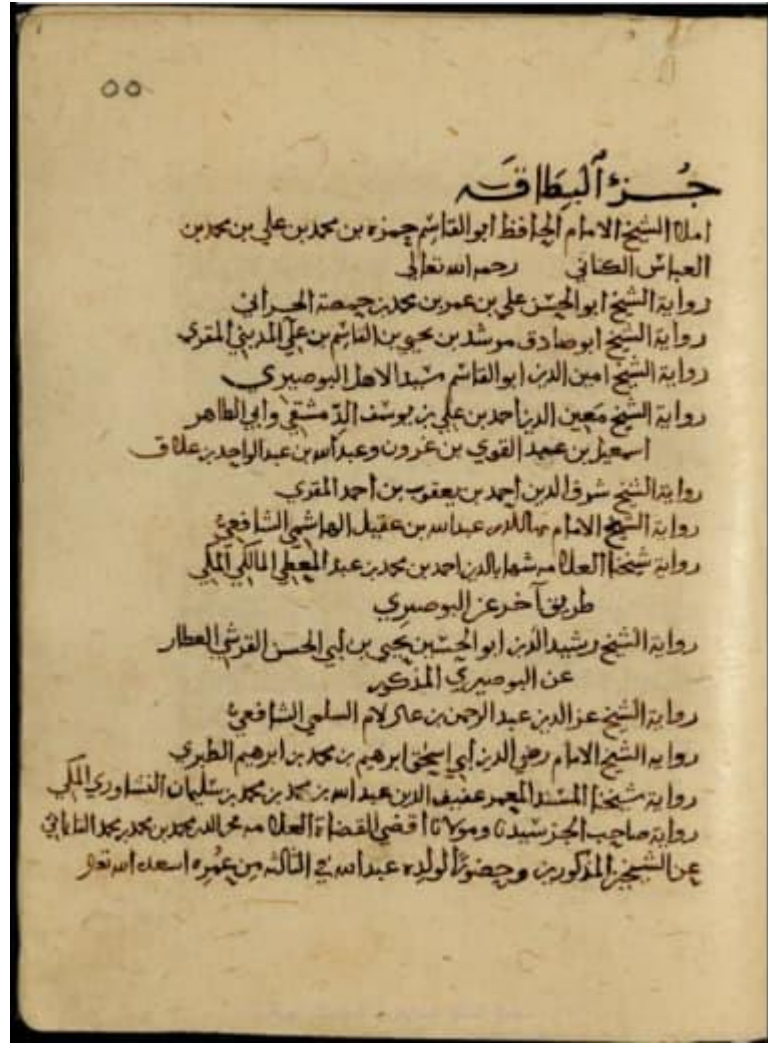 ٥٥
جُزءُ ٱلبِطَاقَة
املا الشيخ الامام الحافظ ابو القاسم حمزه بن محمد بن علي بن محمد بن
العباس الكناني رحمه الله تعالى
رواية الشيخ ابو الحسن علي بن عمر بن محمد بن حمصة الحراني
رواية الشيخ ابو صادق مرشد بن يحيى بن القاسم بن علي المديني المقري
رواية الشيخ امين الدين ابو القاسم سيد الاهل البوصيري
رواية الشيخ معين الدين احمد بن علي بن يوسف الدمشقي وابي الطاهر
اسمعيل بن عبد القوي بن عزون وعبد الله بن عبد الواحد بن علاق
رواية الشيخ شرف الدين احمد بن يعقوب بن احمد المقري
رواية الشيخ الامام بها الدين عبد الله بن عقيل الهاشمي الشافعي
رواية شيخنا العلامه شهاب الدين احمد بن محمد بن عبد المعطي المالكي المكي
طريق آخر عن البوصيري
رواية الشيخ رشيد الدين ابو الحسين يحيى بن ابي الحسن القرشي العطار
عن البوصيري المذكور
رواية الشيخ عز الدين عبد الرحمن بن السلمي الشافعي
روايه الشيخ الامام رضي الدين ابي اسحق ابرهيم بن محمد بن ابرهيم الطبري
رواية شيخنا المسند المعمر عفيف الدين عبد الله بن محمد بن محمد بن سليمان النشاوري المكي
رواية صاحب الجز سيدنا ومولانا اقضى القضاة العلامه محمد بن محمد بن محمد
عن الشيخين المذكورين وحضورًا لولده عبد الله في الثالثه من عمره اسعده الله تعالى